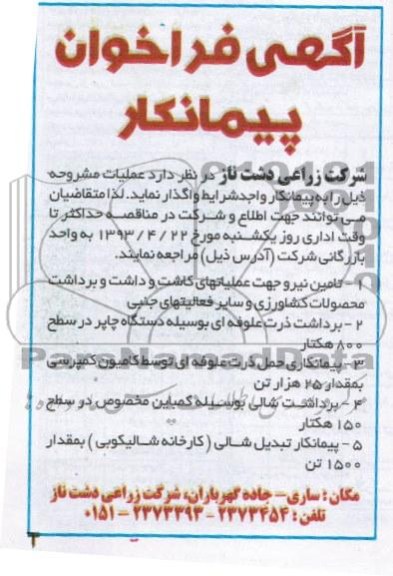 آگهی فراخوان
پیمانکار
شرکت زراعی دشت ناز در نظر دارد عملیات مشروحه
ذیل را به پیمانکار واجد شرایط واگذار نماید. لذا متقاضیان
می توانند جهت اطلاع و شرکت در مناقصه حداکثر تا
وقت اداری روز یکشنبه مورخ ۱۳۹۳/۴/۲۲ به واحد
بازرگانی شرکت (آدرس ذیل) مراجعه نمایند.
۱- تامین نیرو جهت عملیاتهای کاشت و داشت و برداشت
محصولات کشاورزی و سایر فعالیتهای جنبی
۲- برداشت ذرت علوفه ای بوسیله دستگاه چاپر در سطح
۸۰۰ هکتار
۳- پیمانکاری حمل ذرت علوفه ای توسط کامیون کمپرسی
بمقدار ۲۵ هزار تن
۴- برداشت شالی بوسیله کمباین مخصوص در سطح
۱۵۰ هکتار
۵- پیمانکار تبدیل شالی (کارخانه شالیکوبی) بمقدار
۱۵۰۰ تن
مکان: ساری- جاده گهرباران، شرکت زراعی دشت ناز
تلفن: ۲۳۷۳۴۵۴ - ۲۳۷۳۳۹۳ - ۰۱۵۱
ParsNamadData